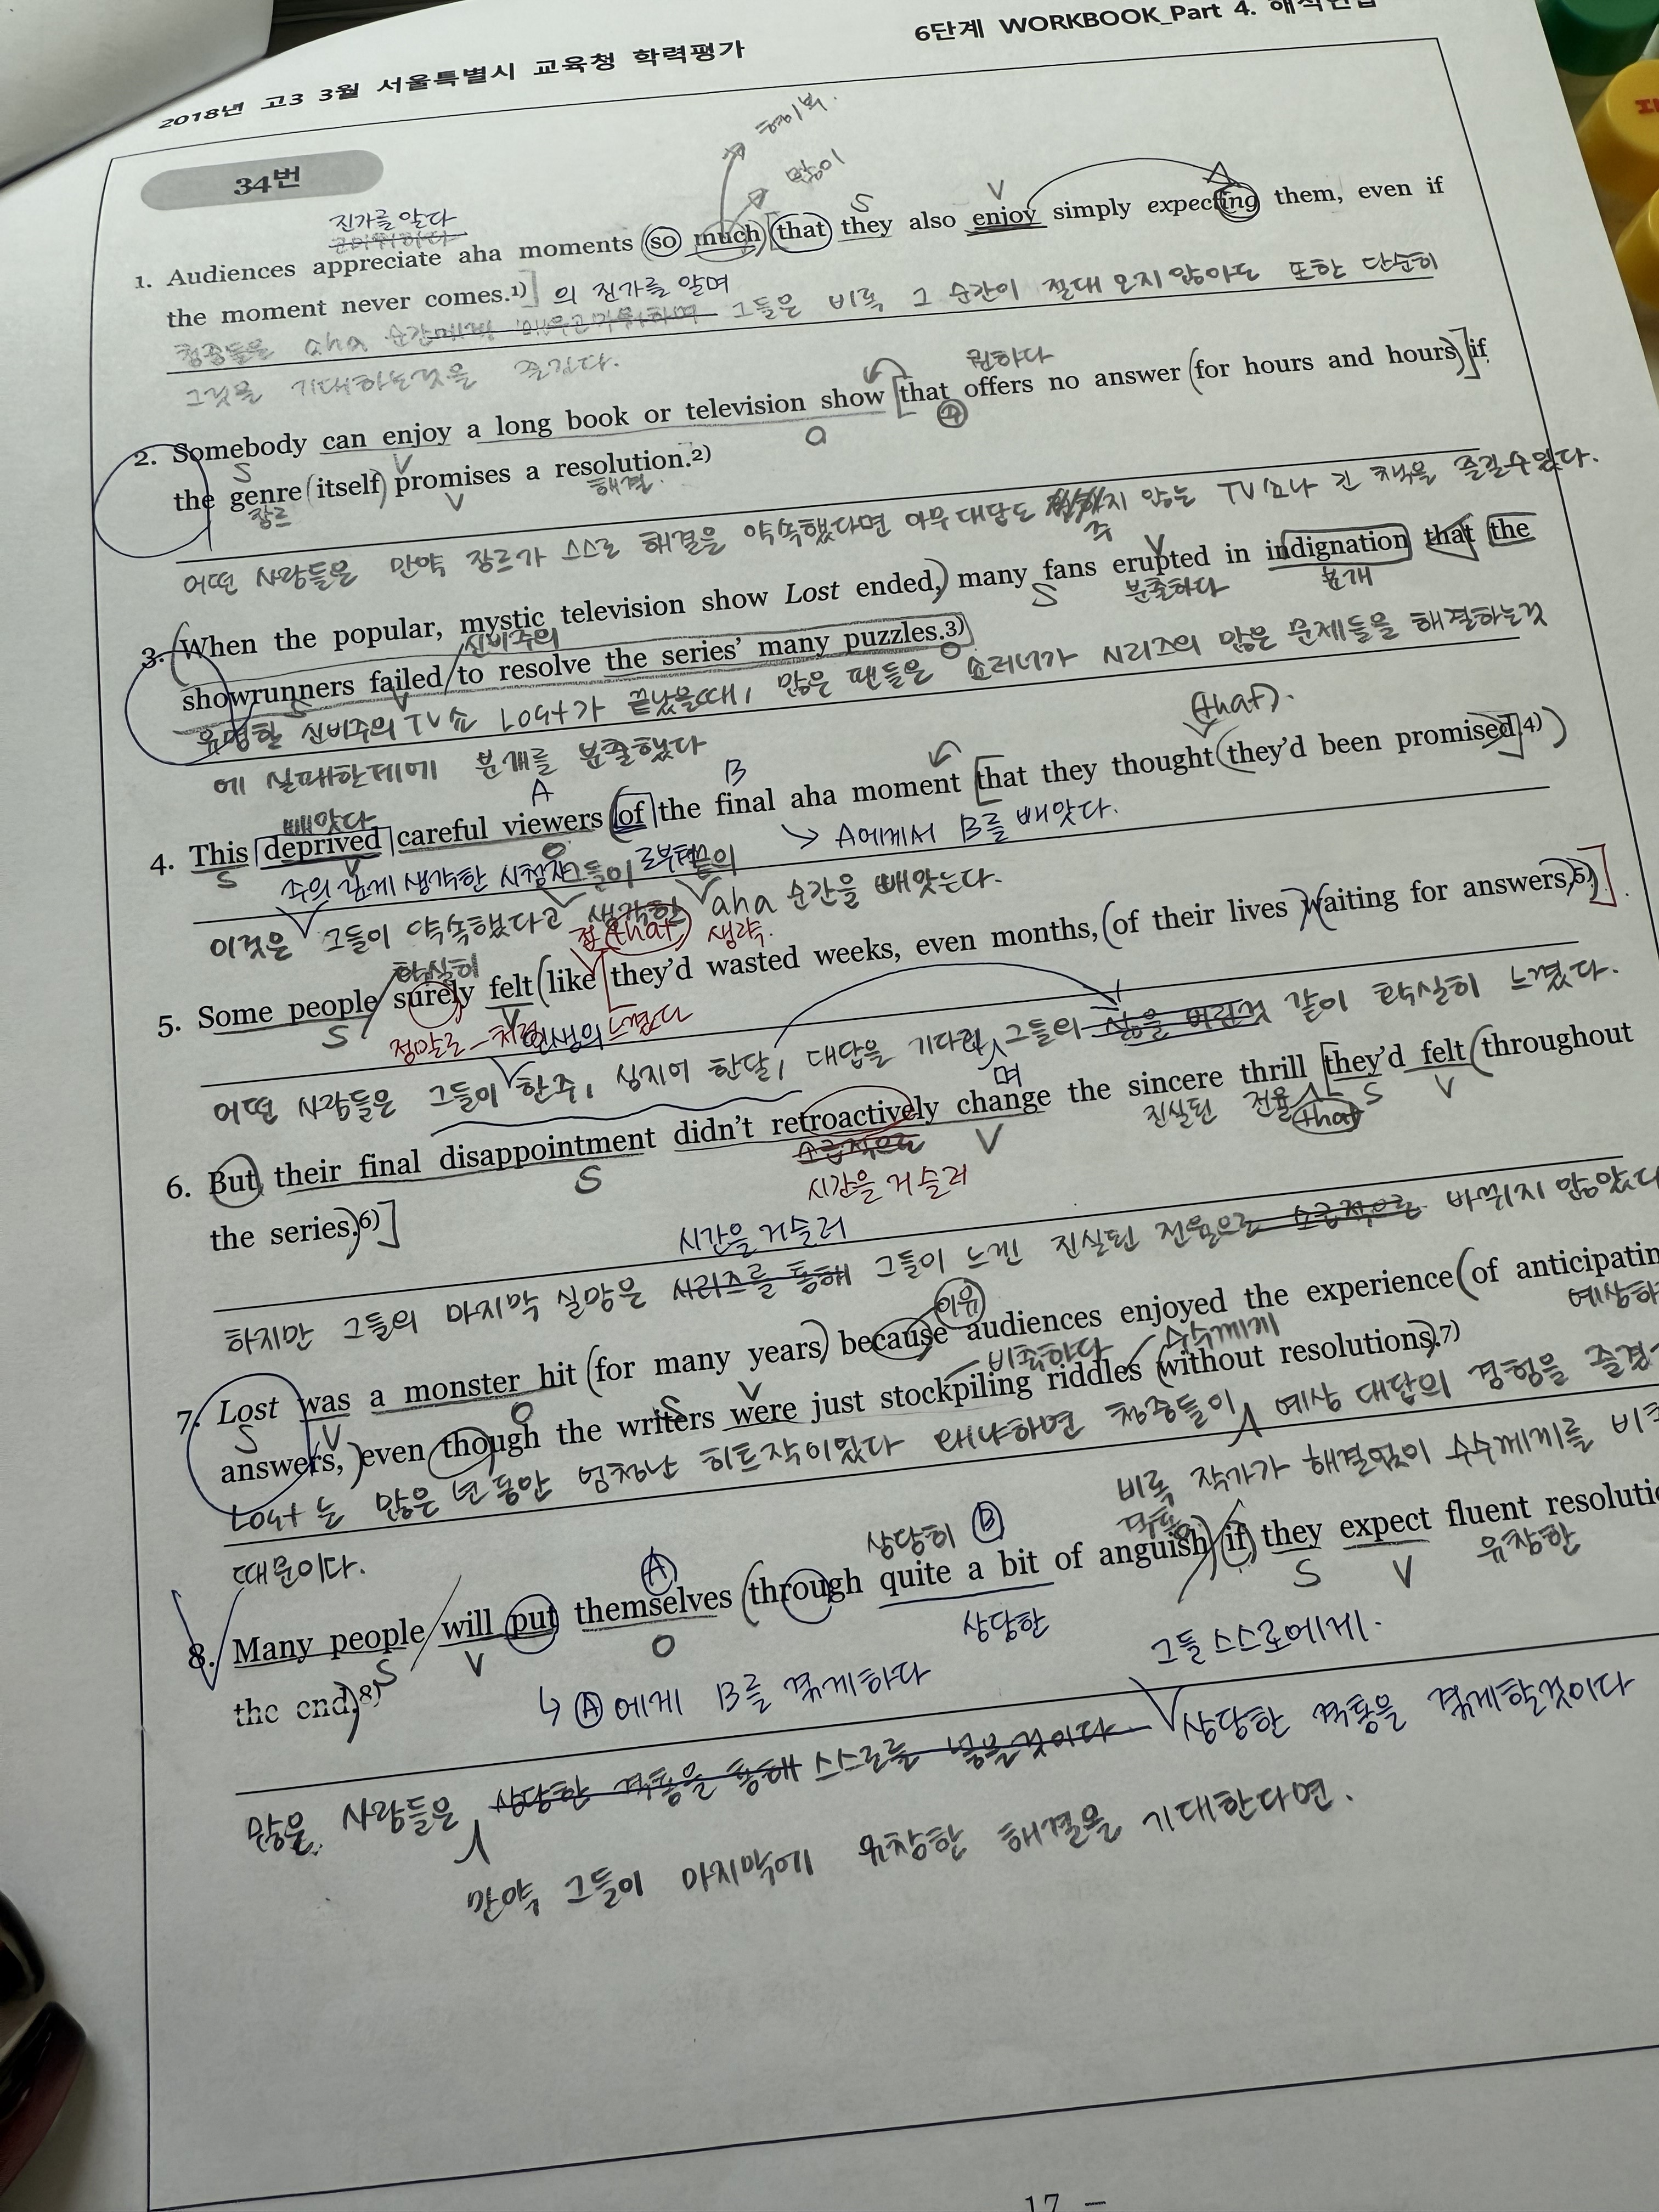 2018년 고3 3월 서울특별시 교육청 학력평가
6단계 WORKBOOK_Part 4. 해석연습
34번
많이
진가를 알다
S
V
1. Audiences appreciate aha moments so much that they also enjoy simply expecting them, even if
the moment never comes.1)
의 진가를 알며
그들은 비록 그 순간이 절대 오지 않아도 또한 단순히
청중들은 aha 순간
그것을 기대하는것을 즐긴다.
원하다
2. Somebody can enjoy a long book or television show that offers no answer (for hours and hours) if
S V O
the genre (itself) promises a resolution.2)
장르 V 해결
어떤 사람들은 만약 장르가 스스로 해결을 약속했다면 아무 대답도 주지 않는 TV쇼나 긴 책을 즐길수있다.
3. (When the popular, mystic television show Lost ended,) many fans erupted in indignation that the
신비주의 S V 분출하다 분개
showrunners failed to resolve the series' many puzzles.3)
S V O
유명한 신비주의 TV쇼 Lost가 끝났을때, 많은 팬들은 쇼러너가 시리즈의 많은 문제들을 해결하는것
에 실패한데에 분개를 분출했다
(that).
빼앗다 A B
4. This deprived careful viewers (of the final aha moment that they thought (they'd been promised.4))
S V O
→ A에게서 B를 빼앗다.
주의 깊게 생각한 시청자 그들이 로부터 끝의
이것은 그들이 약속했다고 생각한 aha 순간을 빼앗는다.
접 (that) 생략.
확실히
5. Some people surely felt (like they'd wasted weeks, even months, (of their lives) waiting for answers.5)
S V
정말로 인생의 느꼈다
어떤 사람들은 그들이 한주, 심지어 한달, 대답을 기다리며 그들의 삶을 버린것 같이 확실히 느꼈다.
6. But, their final disappointment didn't retroactively change the sincere thrill they'd felt (throughout
S 소급적으로 V 진실된 전율 (that) S V
시간을 거슬러
the series.)6)
시간을 거슬러
하지만 그들의 마지막 실망은 시리즈를 통해 그들이 느낀 진실된 전율으로 소급적으로 바뀌지 않았다
이유
7. Lost was a monster hit (for many years) because audiences enjoyed the experience (of anticipatin
S V O 비축하다 수수께끼
S V
answers,) even though the writers were just stockpiling riddles (without resolutions).7)
Lost 는 많은 년 동안 엄청난 히트작이었다 왜냐하면 청중들이 예상 대답의 경험을 즐겼
비록 작가가 해결없이 수수께끼를 비축
때문이다.
상당히 B
A
8. Many people will put themselves (through quite a bit of anguish) if they expect fluent resolutio
S V O 상당한 S V 유창한
the end.8)
↳ A에게 B를 겪게하다
그들 스스로에게.
많은 사람들은 상당한 고통을 통해 스스로를 넣을것이다 상당한 고통을 겪게할것이다
만약 그들이 마지막에 유창한 해결을 기대한다면.
17 –